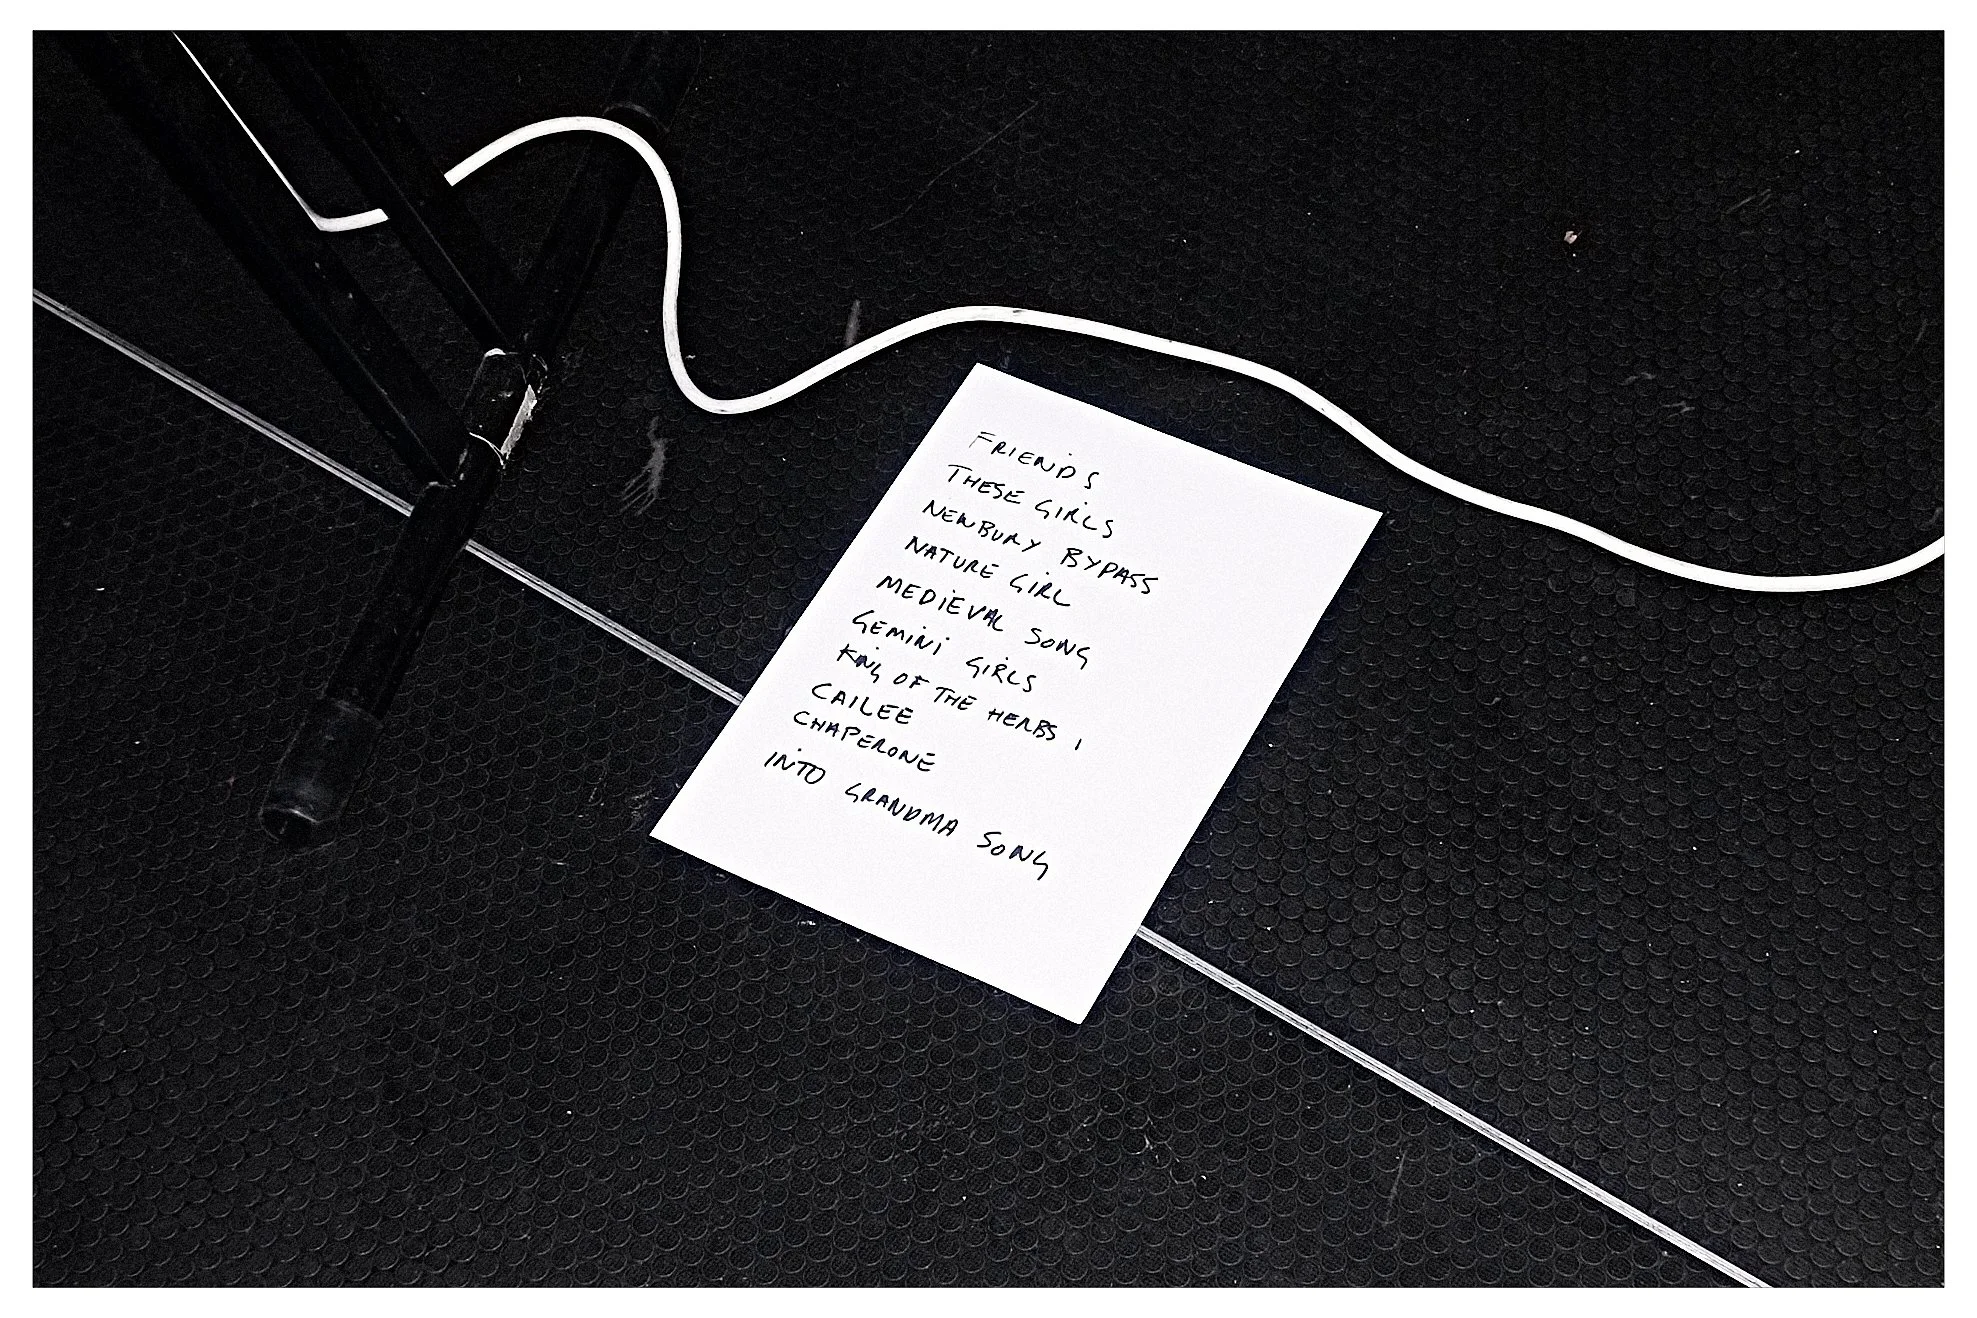 FRIENDS
THESE GIRLS
NEWBURY BYPASS
NATURE GIRL
MEDIEVAL SONG
GEMINI GIRLS
KING OF THE HERBS 1
CAILEE
CHAPERONE
INTO GRANDMA SONG